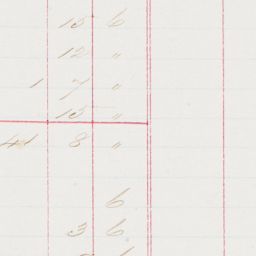 15 6
12 "
1 7 "
15 "
41 8 "
6
3 6